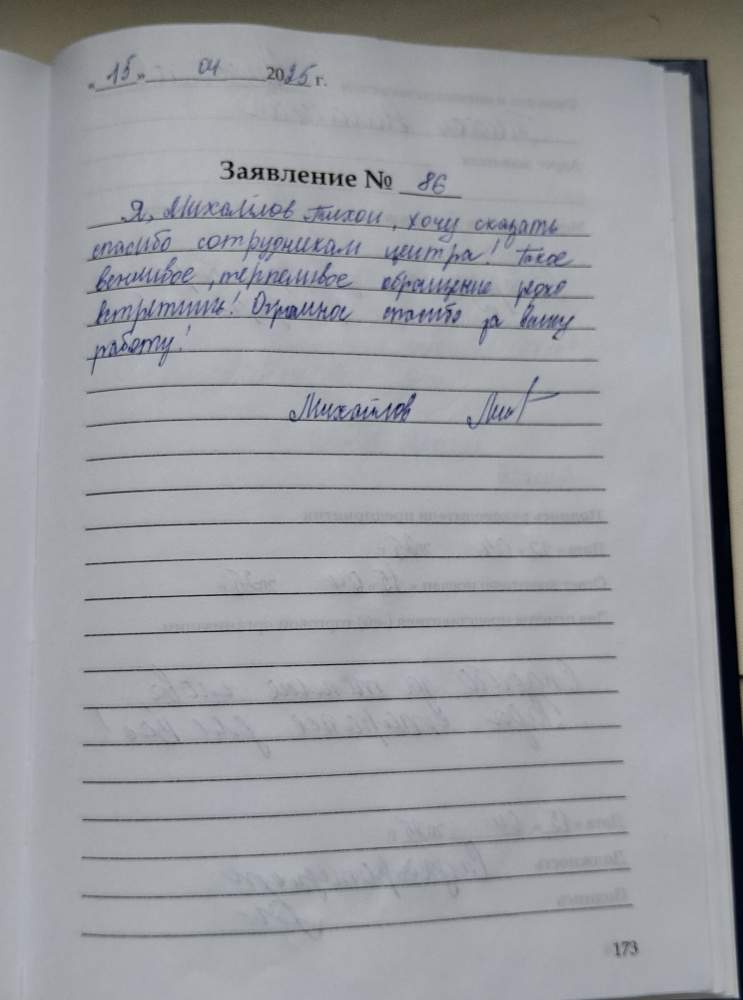 « 15 » 04 2025 г.
Заявление № 86
Я, Михайлов Тихон, хочу сказать
спасибо сотрудникам центра! Такое
вежливое, терпеливое обращение редко
встретишь! Огромное спасибо за вашу
работу!
Михайлов
173